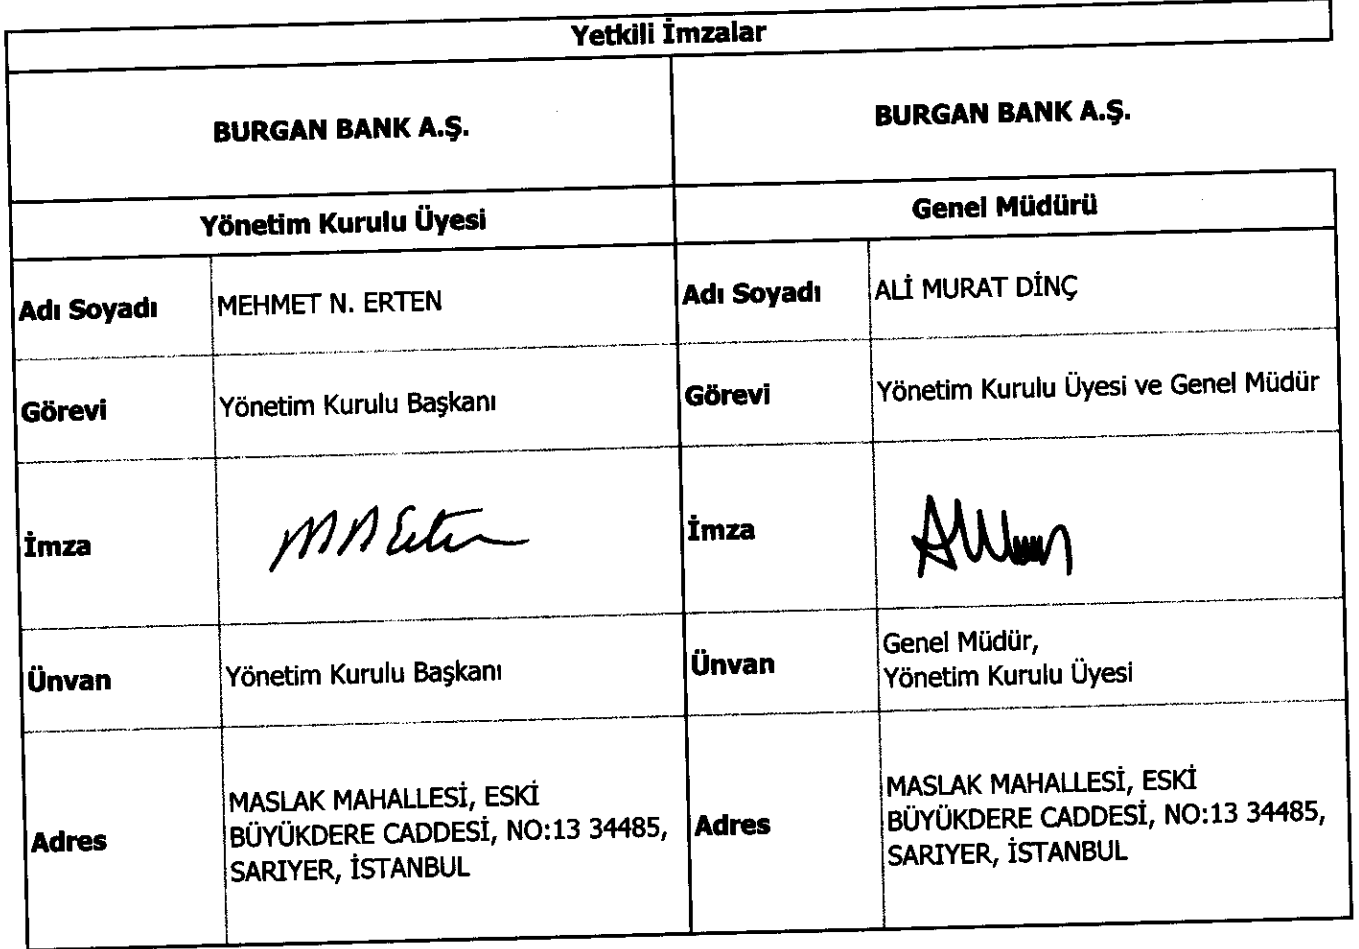 Yetkili İmzalar
BURGAN BANK A.Ş.
BURGAN BANK A.Ş.
Yönetim Kurulu Üyesi
Genel Müdürü
Adı Soyadı
MEHMET N. ERTEN
Adı Soyadı
ALİ MURAT DİNÇ
Görevi
Yönetim Kurulu Başkanı
Görevi
Yönetim Kurulu Üyesi ve Genel Müdür
İmza
İmza
Ünvan
Yönetim Kurulu Başkanı
Ünvan
Genel Müdür,
Yönetim Kurulu Üyesi
Adres
MASLAK MAHALLESİ, ESKİ
BÜYÜKDERE CADDESİ, NO:13 34485,
SARIYER, İSTANBUL
Adres
MASLAK MAHALLESİ, ESKİ
BÜYÜKDERE CADDESİ, NO:13 34485,
SARIYER, İSTANBUL